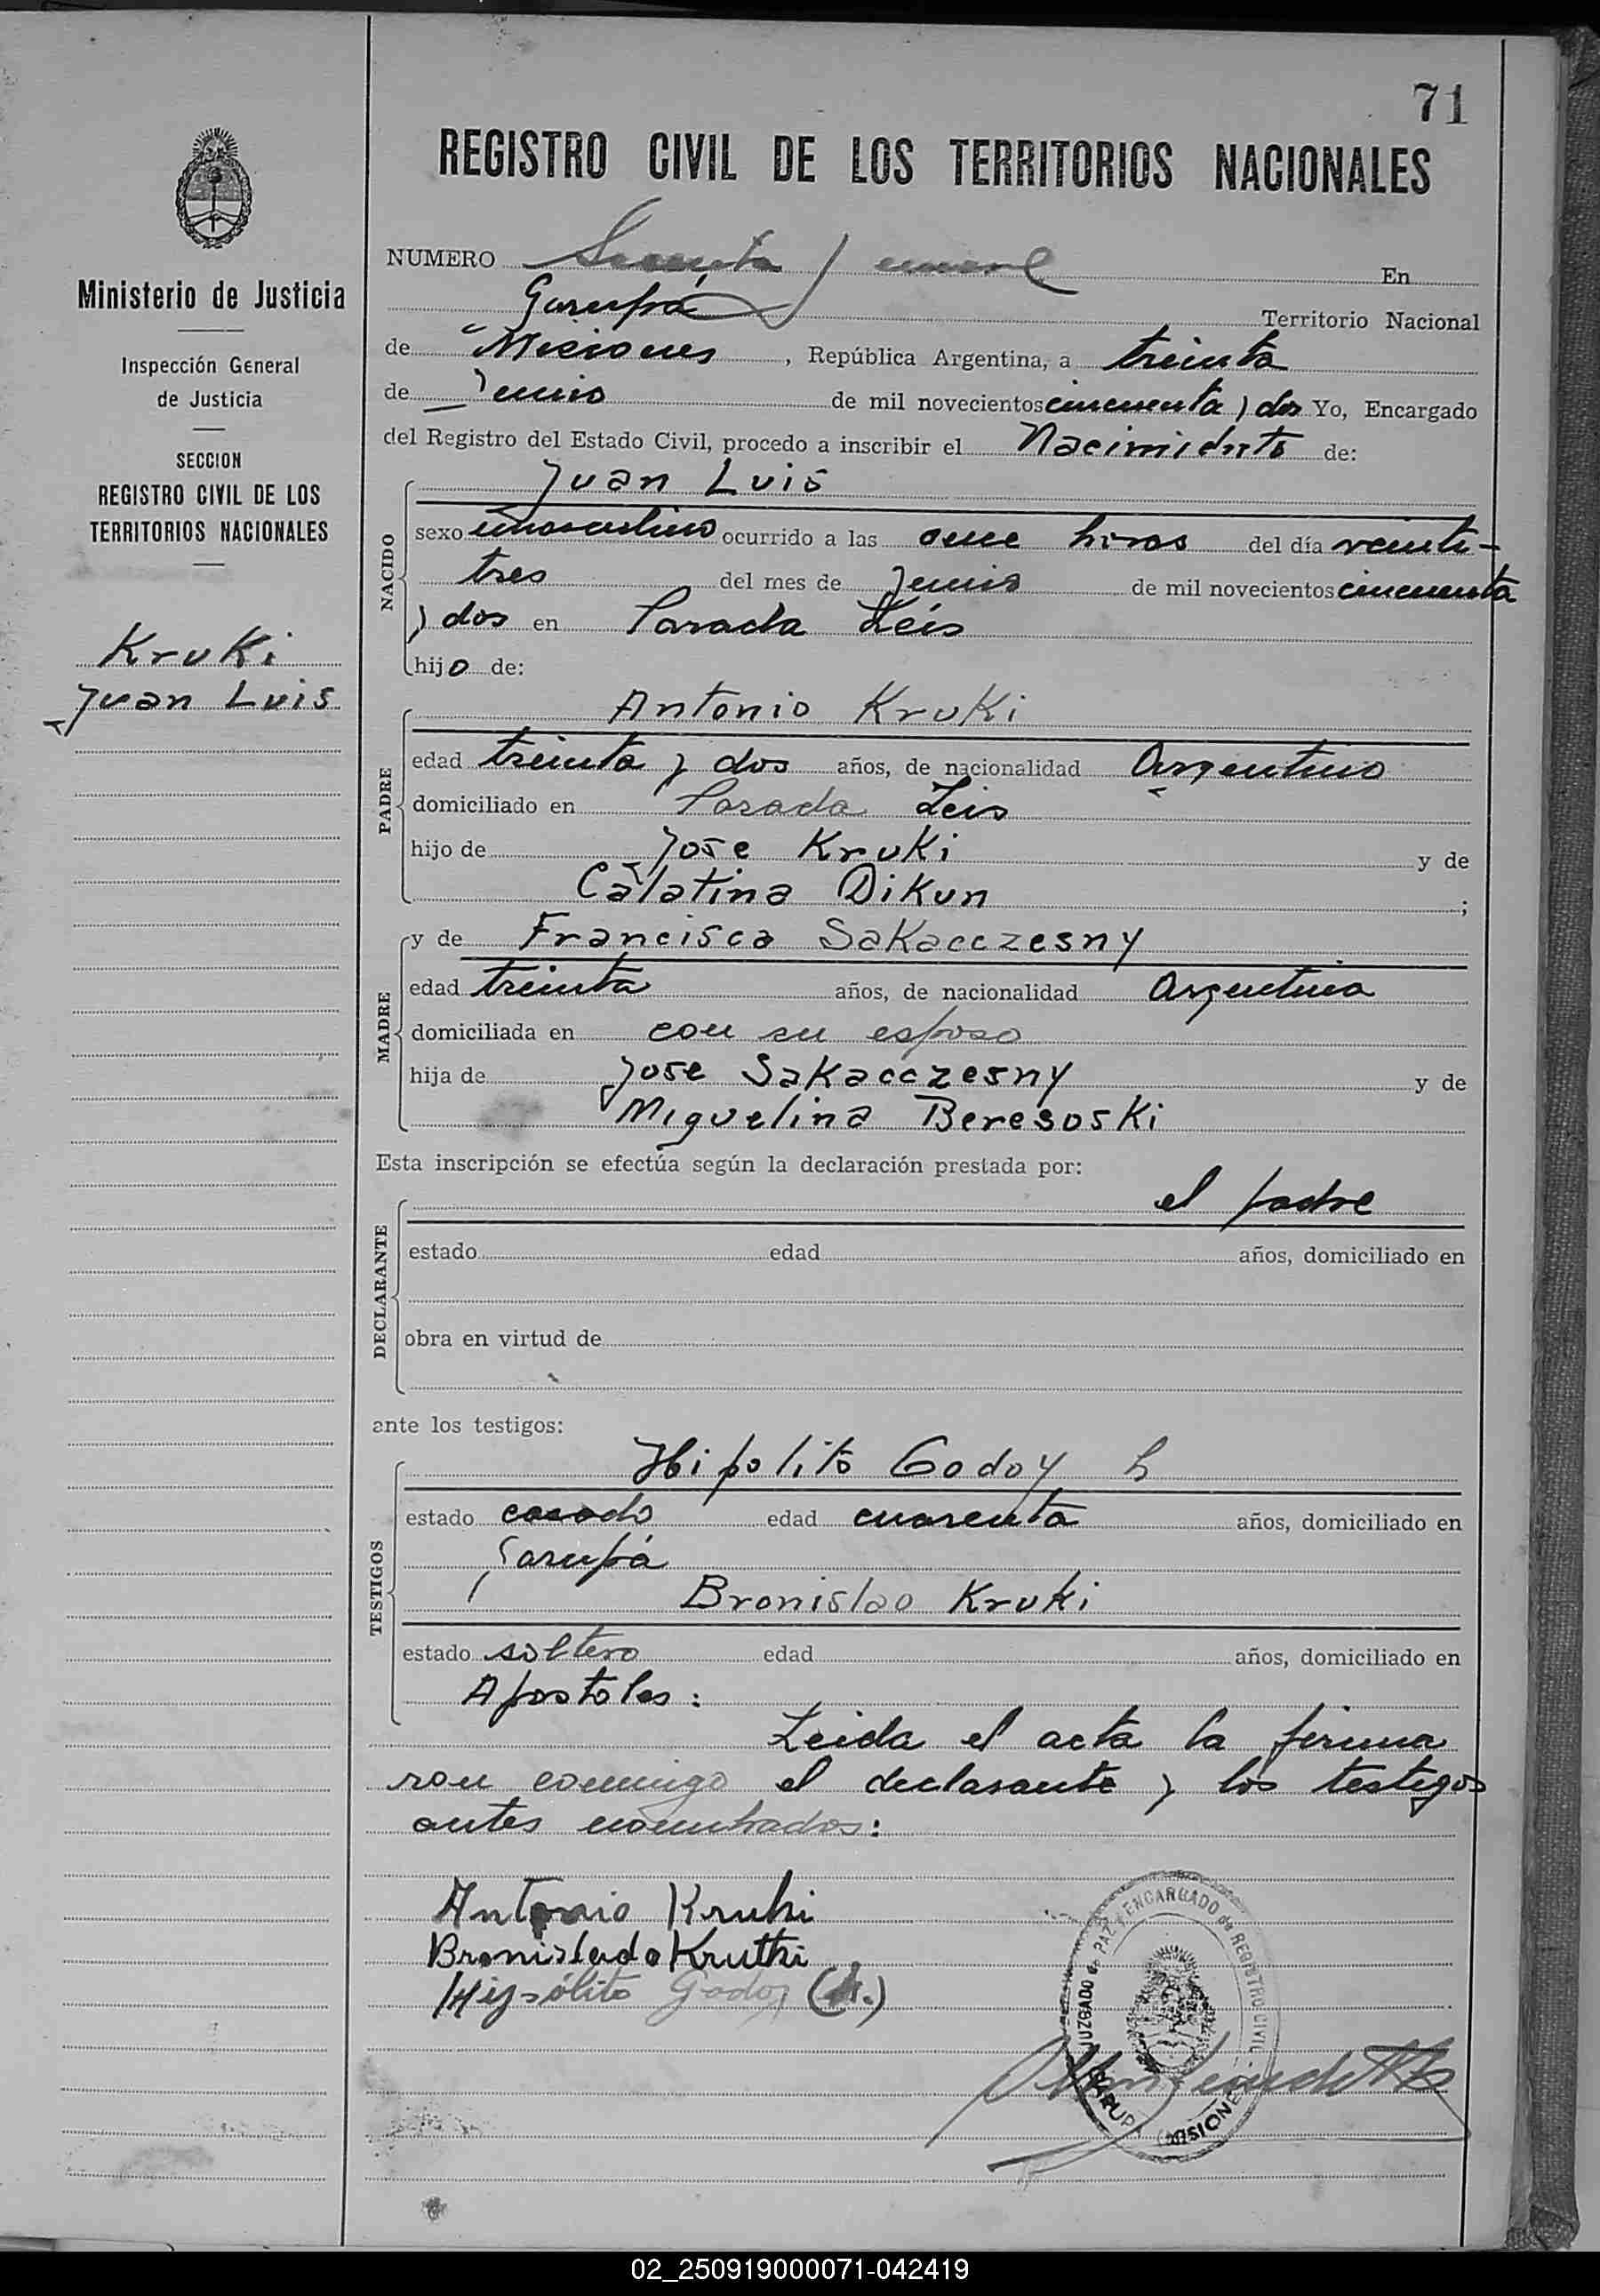 71
REGISTRO CIVIL DE LOS TERRITORIOS NACIONALES
Ministerio de Justicia
Inspección General
de Justicia
SECCION
REGISTRO CIVIL DE LOS
TERRITORIOS NACIONALES
Kruki
Juan Luis
NUMERO Sesenta y nueve En
Garupá Territorio Nacional
de Misiones, República Argentina, a treinta
de Junio de mil novecientos cincuenta y dos Yo, Encargado
del Registro del Estado Civil, procedo a inscribir el Nacimiento de:
NACIDO
Juan Luis
sexo masculino ocurrido a las once horas del día veinti-
tres del mes de Junio de mil novecientos cincuenta
y dos en Parada Leis
hijo de:
PADRE
Antonio Kruki
edad treinta y dos años, de nacionalidad Argentino
domiciliado en Parada Leis
hijo de Jose Kruki y de
Catatina Dikun ;
MADRE
y de Francisca Sakacczesny
edad treinta años, de nacionalidad Argentina
domiciliada en con su esposo
hija de Jose Sakacczesny y de
Miguelina Beresoski
Esta inscripción se efectúa según la declaración prestada por:
DECLARANTE
el padre
estado edad años, domiciliado en
obra en virtud de
ante los testigos:
TESTIGOS
Hipolito Godoy h
estado casado edad cuarenta años, domiciliado en
Garupá
Bronislao Kruki
estado soltero edad años, domiciliado en
Apostoles:
Leida el acta la firma
ron conmigo el declarante y los testigos
antes nombrados:
Antonio Kruki
Bronislado Kruki
Hipólito Godoy (h.)
JUZGADO de PAZ y ENCARGADO de REGISTRO CIVIL
GARUPA MISIONES
02_250919000071-042419